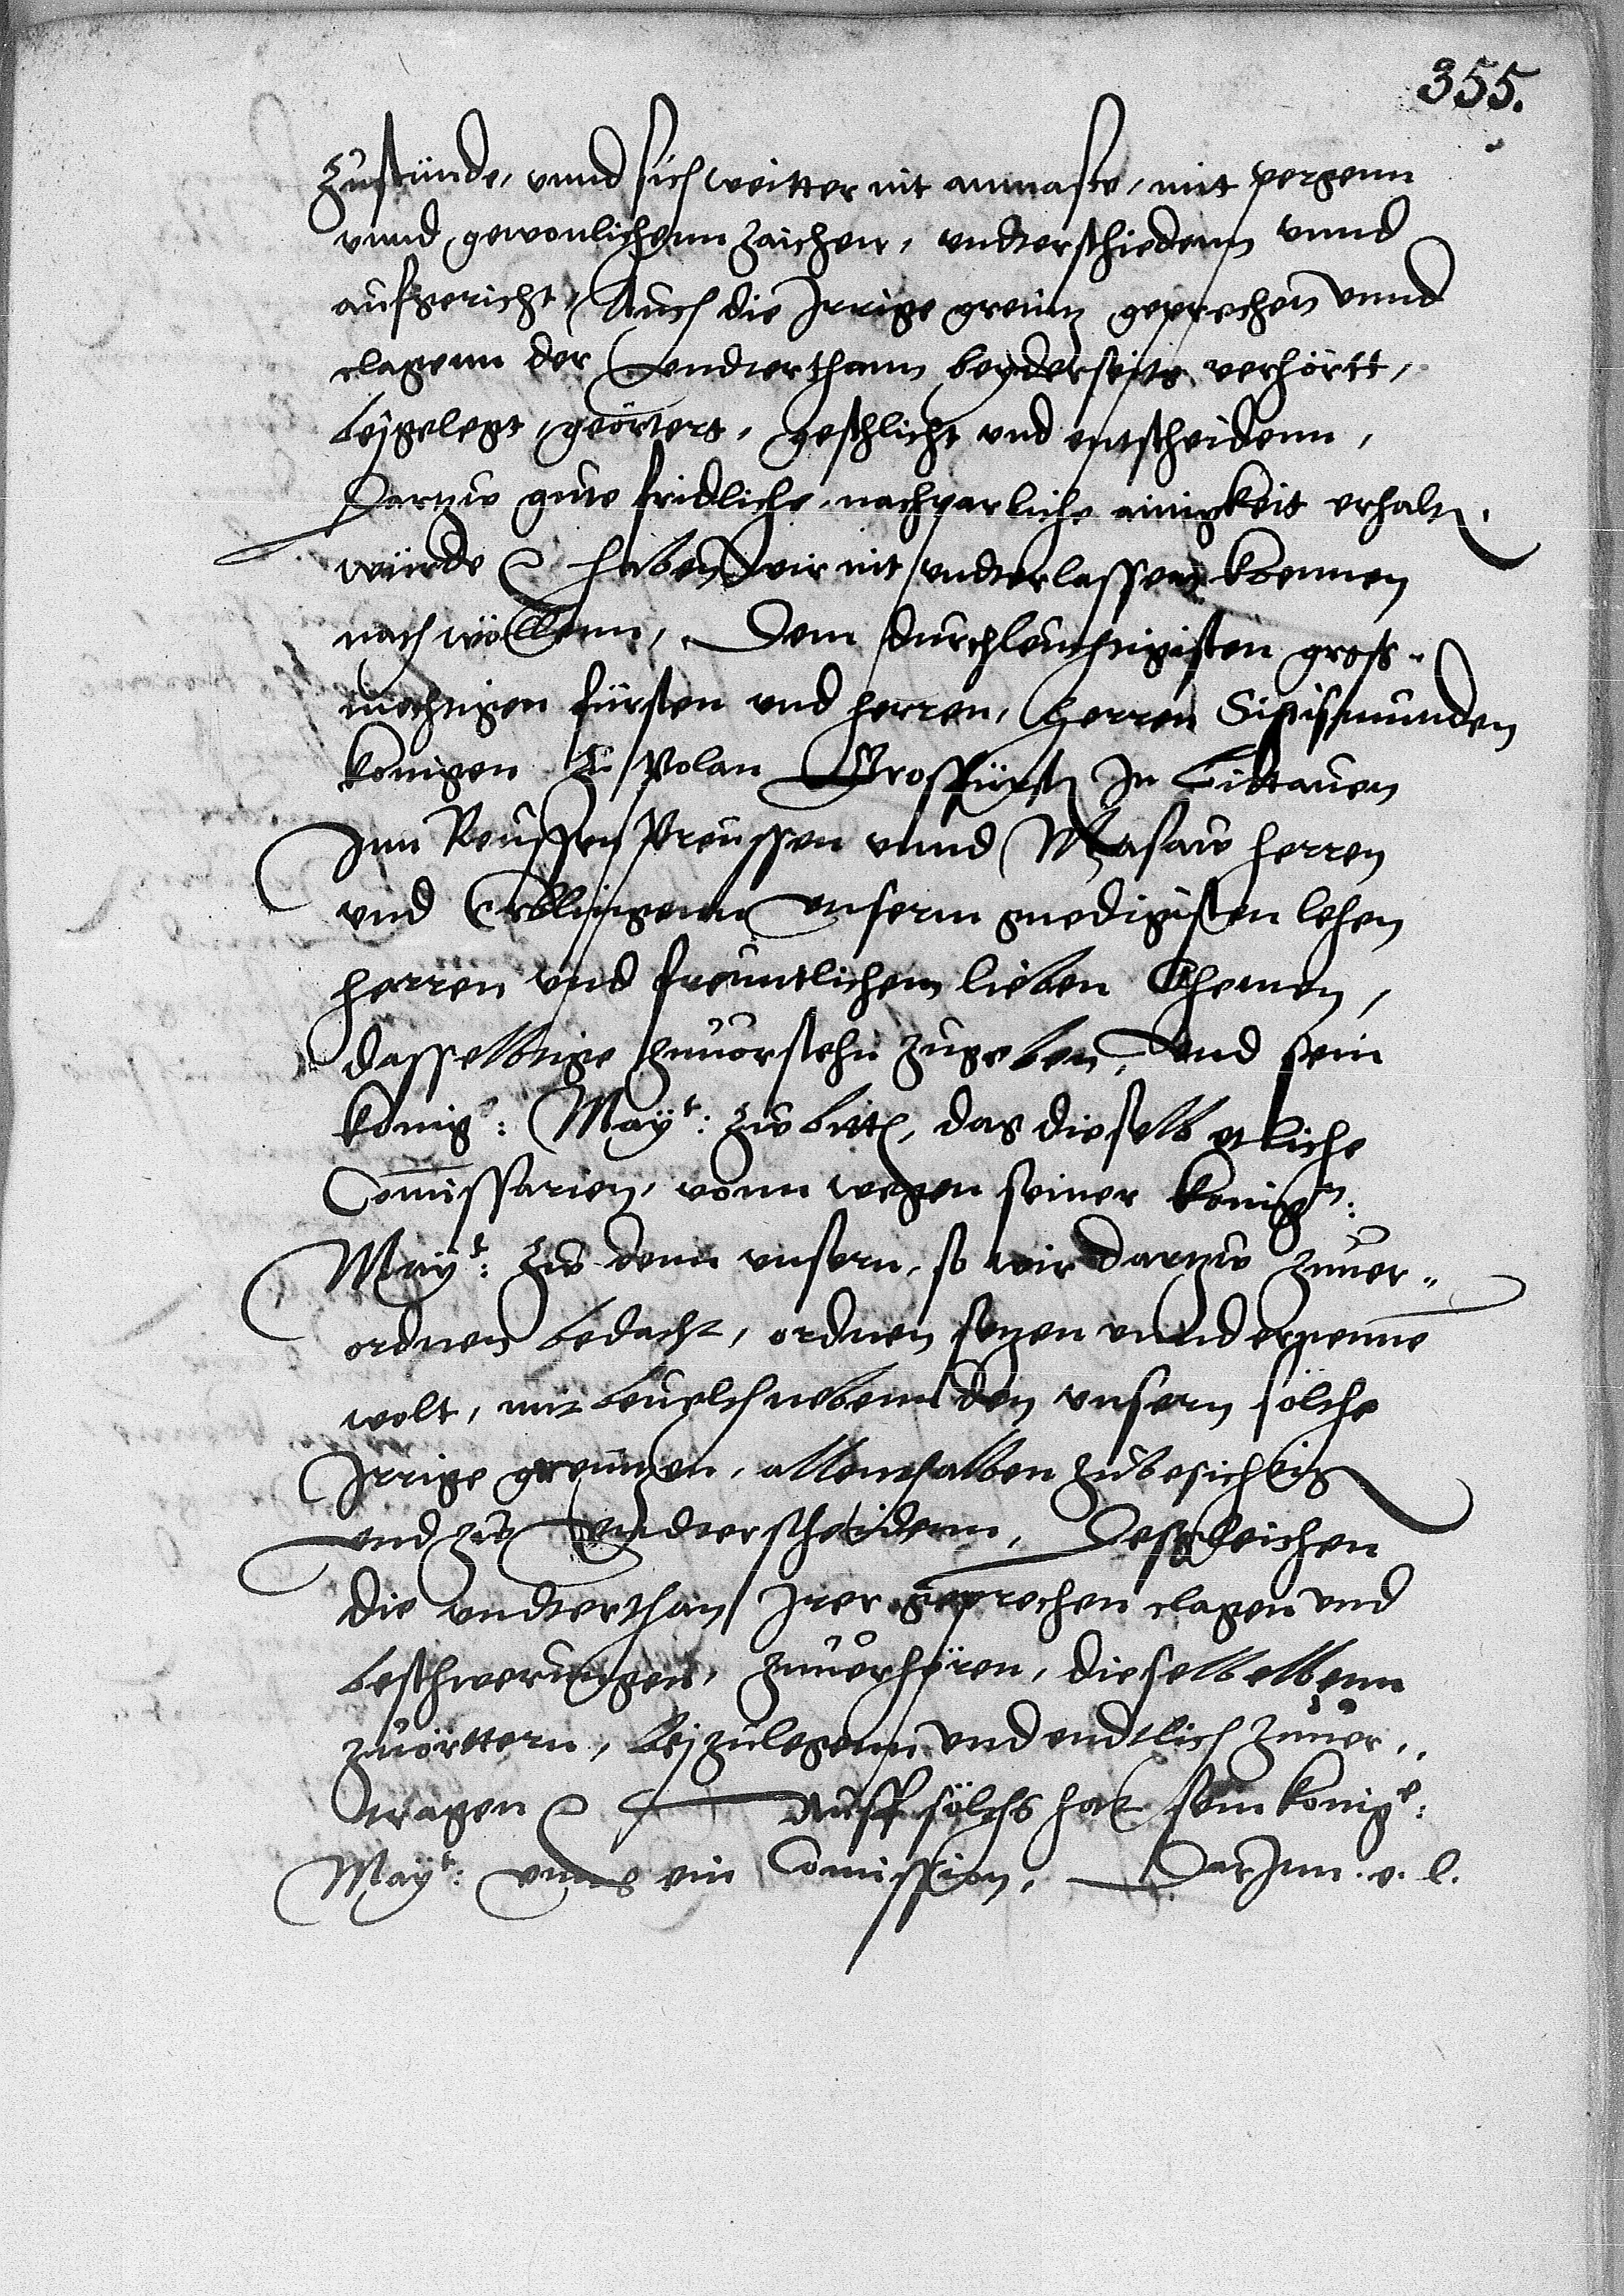 355.
zustunde, vnnd sich weitter nit anmaste, mit pergenn
vnnd gewonlichenn zaichen, vndterschiedenn vnnd
aufgericht, Auch die Irrige greintz geprechen vnnd
clagenn der vndterthann beyderseits verhörtt,
beygelegt, geörtert, geschlicht vnd entscheidenn,
Dartzw gute fridliche nachparliche ainigkeit erhaltn
würde haben wir nit vndterlassen koennen
noch wöllenn, Dem durchleuchtigisten gross-
mechtigen fürsten vnd herren, Herren Sigissmunden
konigen zu Polan Grosfürst In Littauen
Inn Reussen Preussen vnnd Masaw herren
vnd Erblingenn vnserm gnedigisten lehen
herren vnd freuntlichenn lieben Ohemen,
dasselbige zuuorstehn zugeben, vnd sein
konigl: Mayt: zw bittn, das dieselb etliche
Comissarien, vonn wegen seiner konign:
Mayt: zw denn vnsern, so wir dartzw zuuer-
ordnen bedacht, ordnen setzen vnnd ernenne
wolt, mit beuelch nebenn den vnsern sölche
Irrige greinitzen, allenthalben zubesichtign
vnd zu vndterscheidenn, Dessgleichen
die vndterthan Irer geprechen clagen vnd
beschwerungen, zuuerhören, dieselbelbenn
zuörttern, beyzulegenn vnd endtlich zuuer-
tragen Auff sölchs hat sein konigl:
Mayt: vnns ein Comission, DarInn e. l.